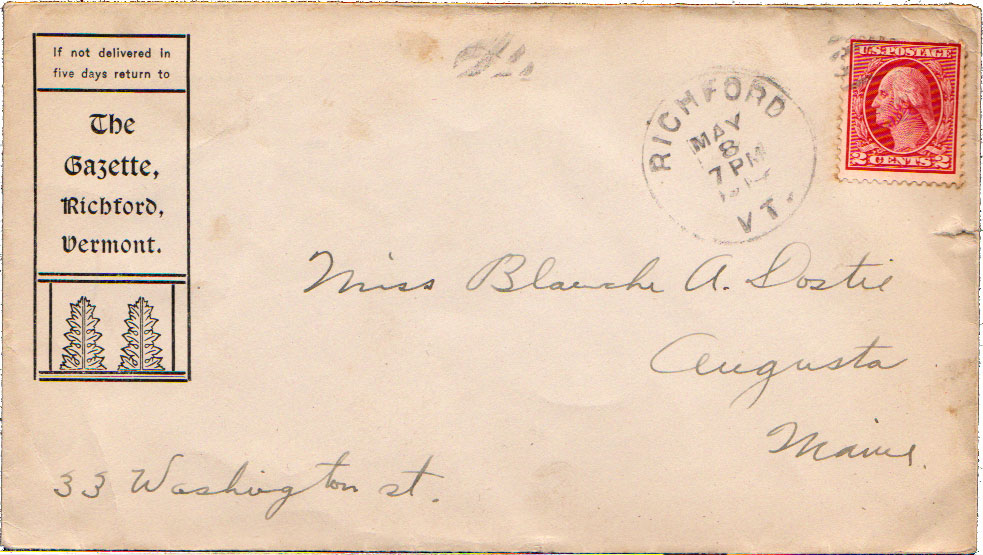 If not delivered in
five days return to
The
Gazette,
Richford,
Vermont.
RICHFORD
MAY
8
7 PM
VT.
U.S. POSTAGE
2 CENTS 2
Miss Blanche A. Dostie
Augusta
Maine.
33 Washington st.